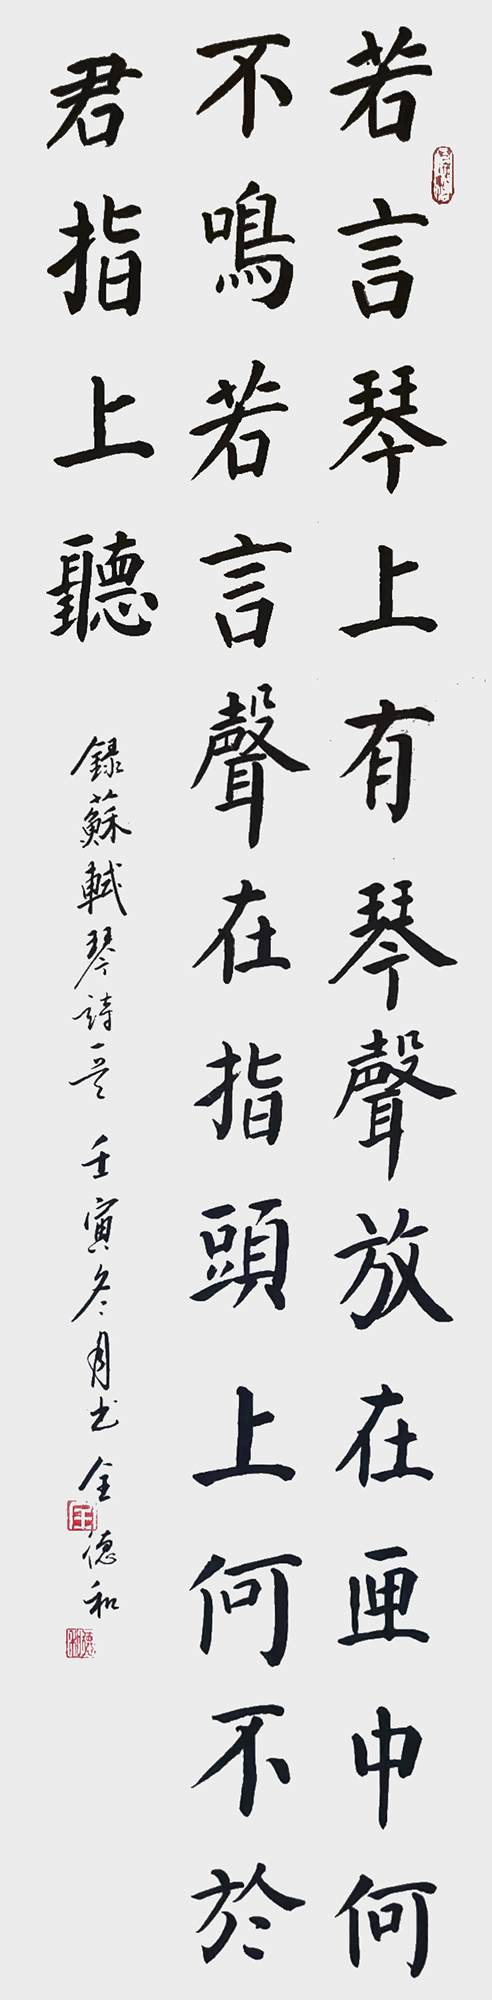 若言琴上有琴聲放在匣中何
不鳴若言聲在指頭上何不於
君指上聽
録蘇軾琴詩一首 壬寅冬月书 全德和